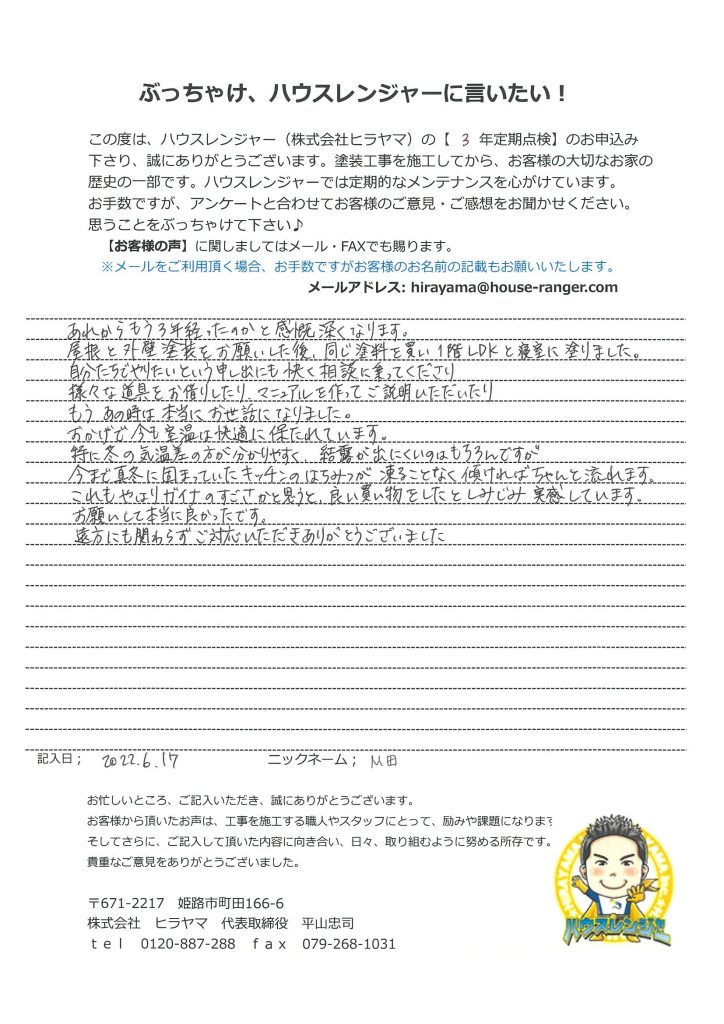 ぶっちゃけ、ハウスレンジャーに言いたい！
この度は、ハウスレンジャー（株式会社ヒラヤマ）の【 3 年定期点検】のお申込み
下さり、誠にありがとうございます。塗装工事を施工してから、お客様の大切なお家の
歴史の一部です。ハウスレンジャーでは定期的なメンテナンスを心がけています。
お手数ですが、アンケートと合わせてお客様のご意見・ご感想をお聞かせください。
思うことをぶっちゃけて下さい♪
【お客様の声】に関しましてはメール・FAXでも賜ります。
※メールをご利用頂く場合、お手数ですがお客様のお名前の記載もお願いいたします。
メールアドレス: hirayama@house-ranger.com
あれからもう3年経ったのかと感慨深くなります。
屋根と外壁塗装をお願いした後、同じ塗料を買い1階LDKと寝室に塗りました。
自分たちでやりたいという申し出にも快く相談に乗ってくださり
様々な道具をお借りしたり、マニュアルを作ってご説明いただいたり
もうあの時は本当にお世話になりました。
おかげで今も室温は快適に保たれています。
特に冬の気温差の方が分かりやすく、結露が出にくいのはもちろんですが
今まで真冬に固まっていたキッチンのはちみつが凍ることなく傾ければちゃんと流れます。
これもやはりガイナのすごさかと思うと、良い買い物をしたとしみじみ実感しています。
お願いして本当に良かったです。
遠方にも関わらずご対応いただきありがとうございました
記入日； 2022.6.17 ニックネーム； M田
お忙しいところ、ご記入いただき、誠にありがとうございます。
お客様から頂いたお声は、工事を施工する職人やスタッフにとって、励みや課題になります
そしてさらに、ご記入して頂いた内容に向き合い、日々、取り組むように努める所存です。
貴重なご意見をありがとうございました。
〒671-2217 姫路市町田166-6
株式会社 ヒラヤマ 代表取締役 平山忠司
ｔｅｌ 0120-887-288 ｆａｘ 079-268-1031
ハウスレンジャー